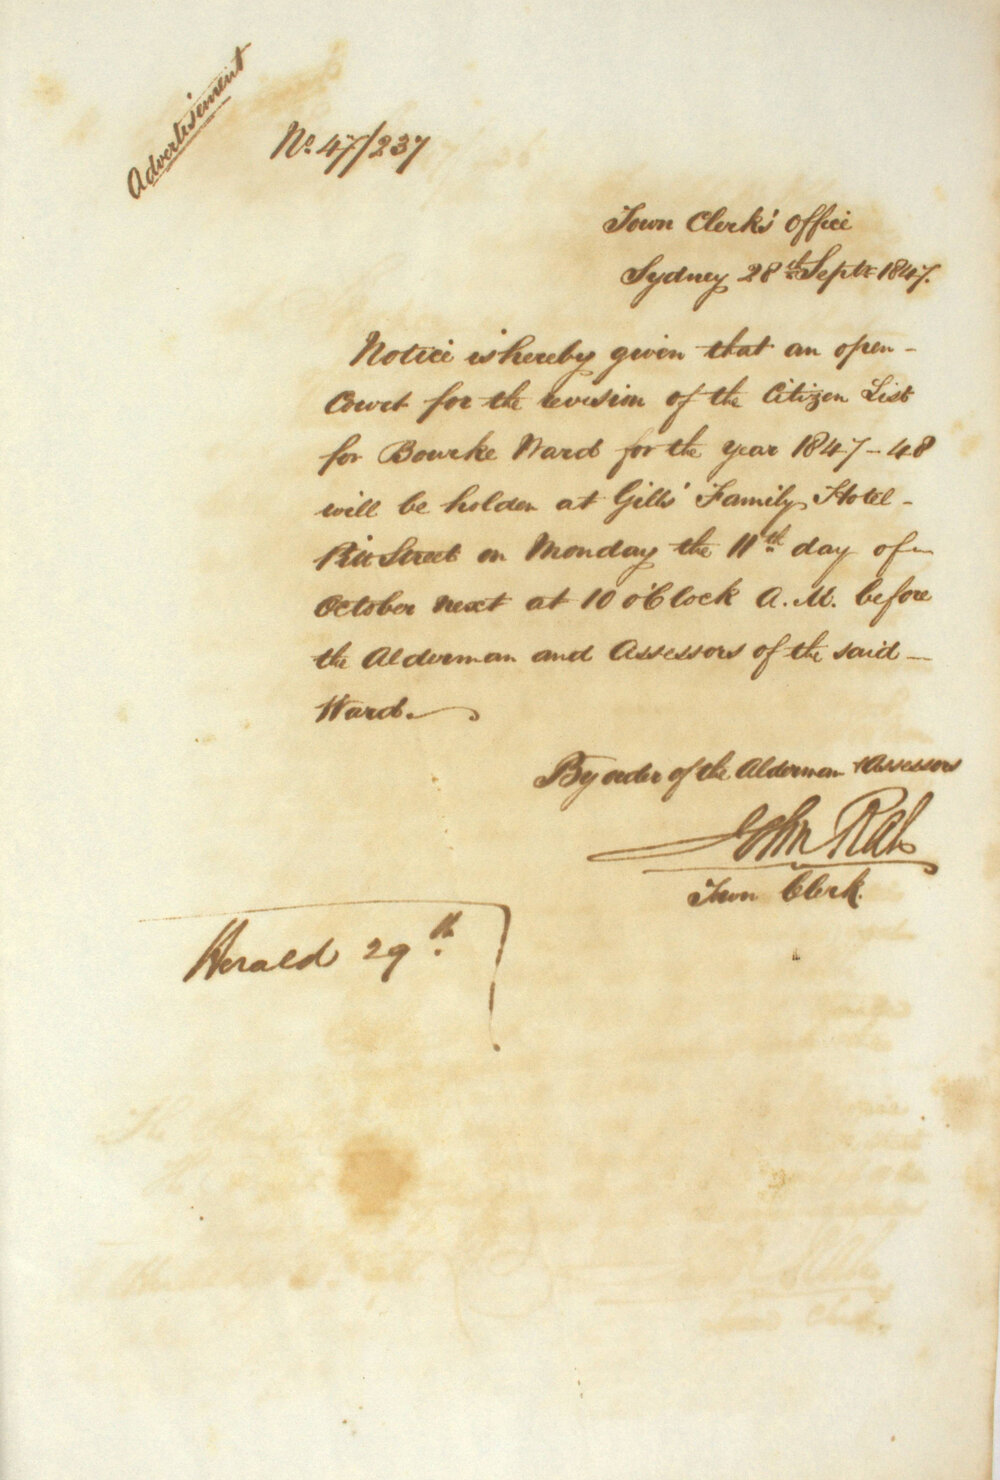 Advertisement
No. 47/237
Town Clerk's Office
Sydney 28th Septr 1847.
Notice is hereby given that an open -
Court for the revision of the Citizen List
for Bourke Ward for the year 1847-48
will be holden at Gills' Family Hotel -
Pitt Street on Monday the 11th day of -
October next at 10 o'Clock A.M. before
the Alderman and Assessors of the said -
Ward.
By order of the Alderman & Assessors
John Rae
Town Clerk.
Herald 29th.